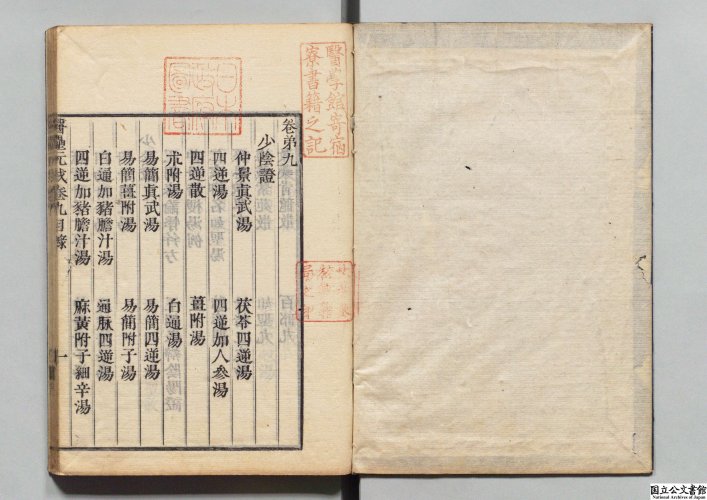 日本政府圖書
醫學館寄宿
寮書籍之記
卷弟九
少陰證
仲景真武湯　茯苓四逆湯
四逆湯　四逆加人參湯
四逆散　薑附湯
朮附湯　白通湯
易簡真武湯　易簡四逆湯
易簡薑附湯　易簡附子湯
白通加豬膽汁湯　通脉四逆湯
四逆加豬膽汁湯　麻黃附子細辛湯
醫壘元戎卷九目錄　一
国立公文書館
National Archives of Japan